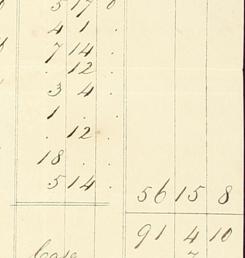 5 17 0
4 1 .
7 14 .
. 12 .
3 4 .
1 . .
. 12 .
18 . .
5 14 . 56 15 8
91 4 10